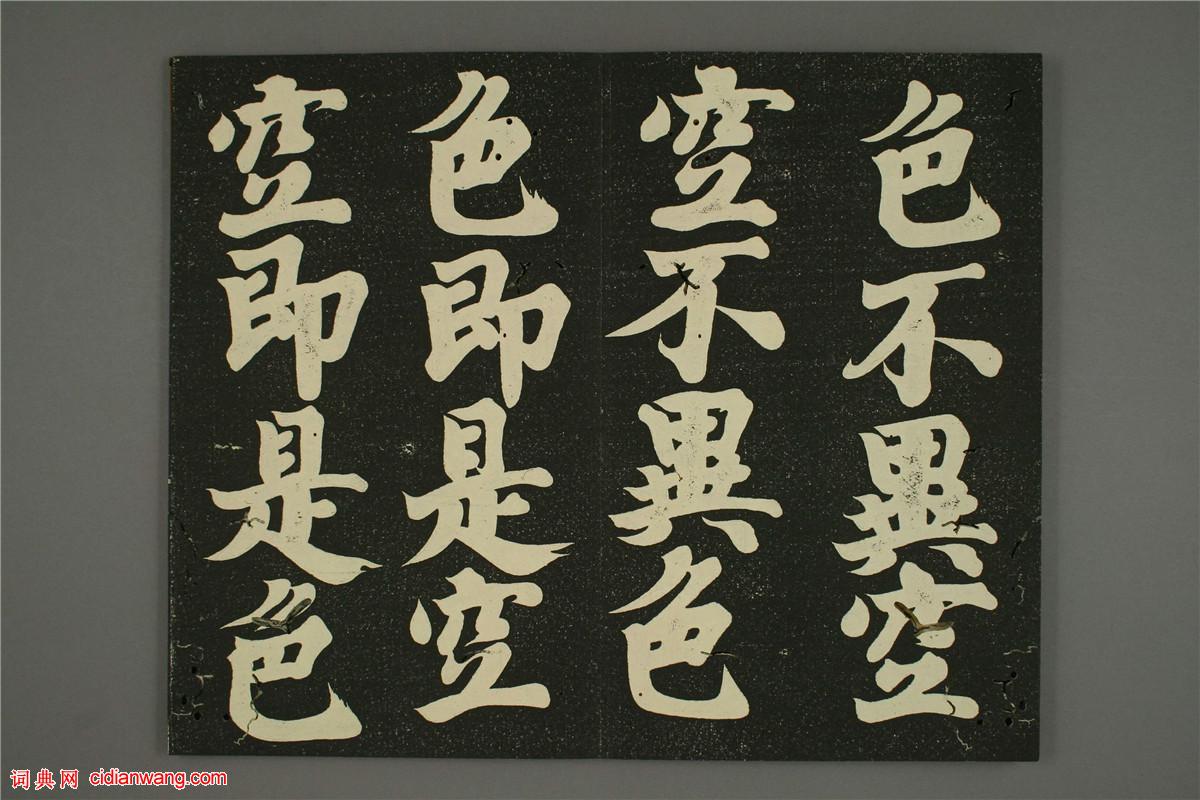 色不異空
空不異色
色即是空
空即是色
词典网 cidianwang.com